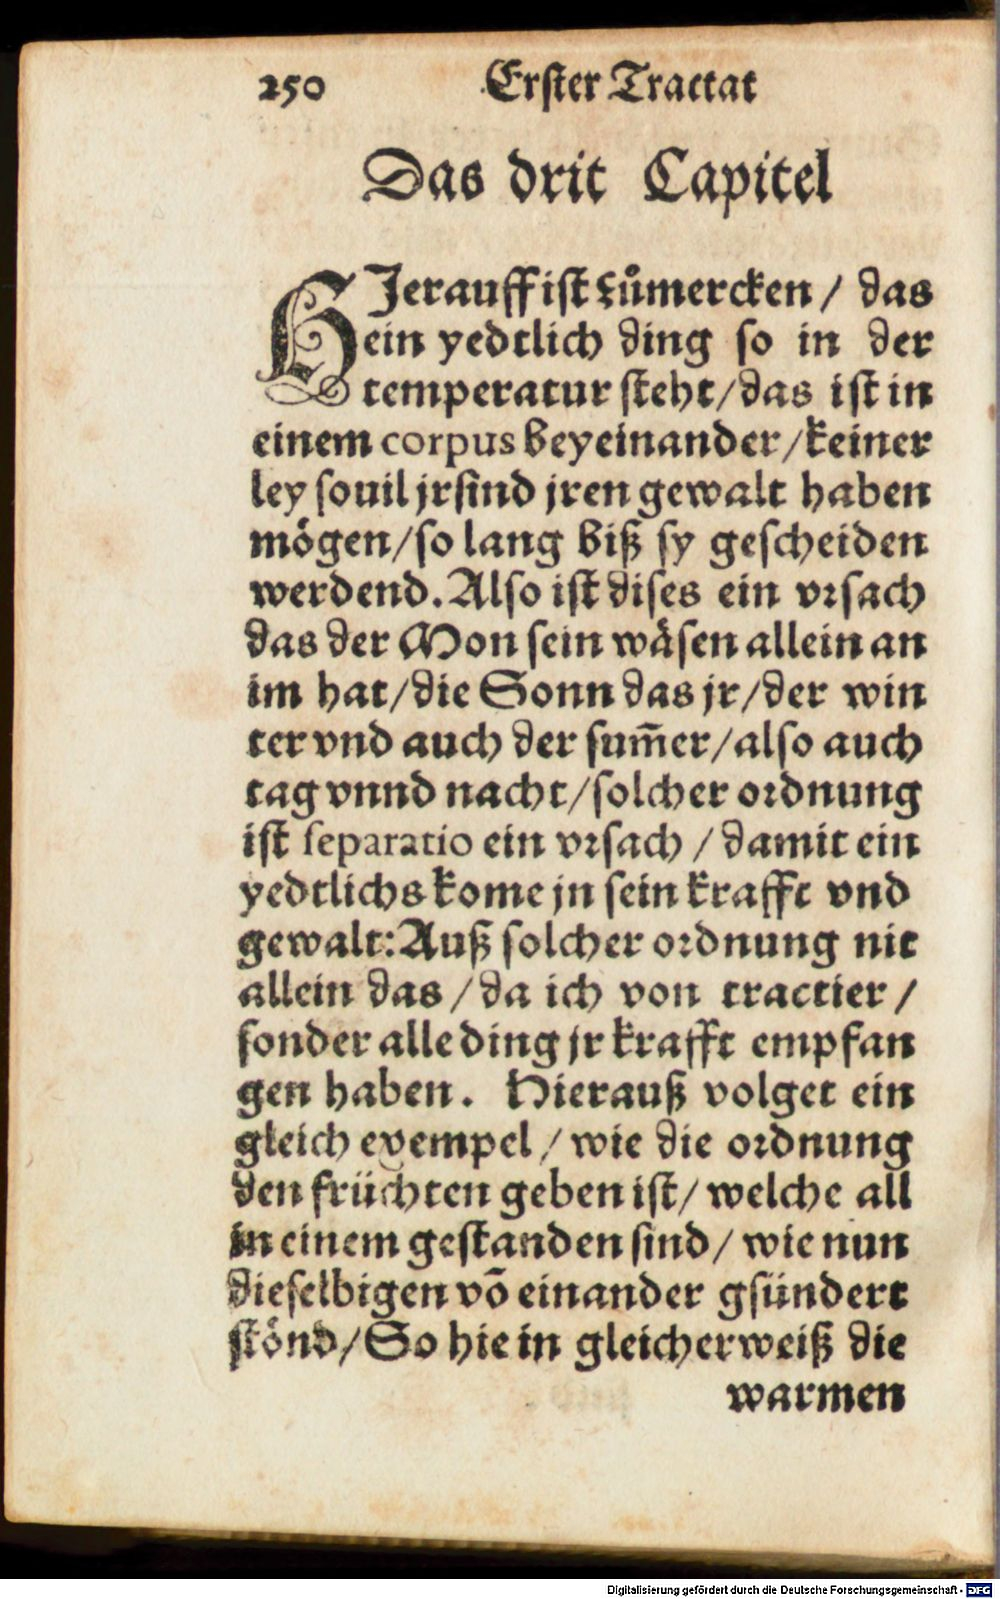 250 Erster Tractat
Das drit Capitel
HJerauff ist zůmercken / das
ein yedtlich ding so in der
temperatur steht/das ist in
einem corpus beyeinander/keiner
ley souil jr sind jren gewalt haben
mögen/so lang biß sy gescheiden
werdend. Also ist dises ein vrsach
das der Mon sein wäsen allein an
im hat/die Sonn das jr/der win
ter vnd auch der sum̃er/also auch
tag vnnd nacht/solcher ordnung
ist separatio ein vrsach / damit ein
yedtlichs kome jn sein krafft vnd
gewalt: Auß solcher ordnung nit
allein das / da ich von tractier /
sonder alle ding jr krafft empfan
gen haben. Hierauß volget ein
gleich exempel / wie die ordnung
den früchten geben ist/ welche all
in einem gestanden sind/ wie nun
dieselbigen võ einander gsündert
stönd/So hie in gleicher weiß die
warmen
Digitalisierung gefördert durch die Deutsche Forschungsgemeinschaft - DFG